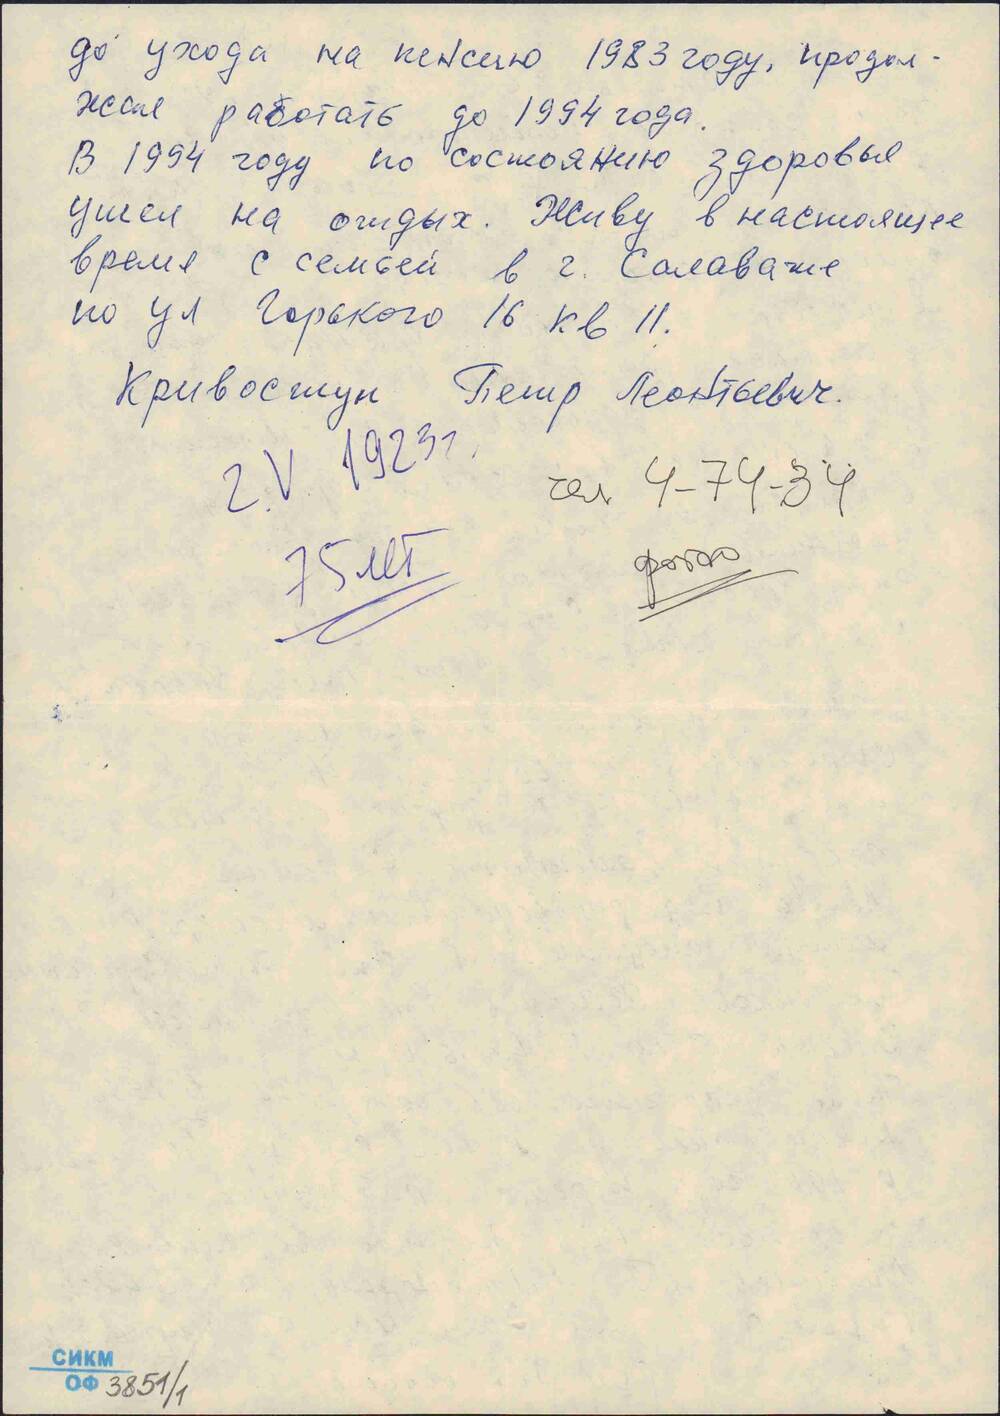 до ухода на пенсию 1983 году, продол-
жал работать до 1994 года.
В 1994 году по состоянию здоровья
ушел на отдых. Живу в настоящее
время с семьей в г. Салавате
по ул Горького 16 кв 11.
Кривостун Петр Леонтьевич.
2.V. 1923г.
тел 4-74-34
75 лет
фото
СИКМ
ОФ 3851/1